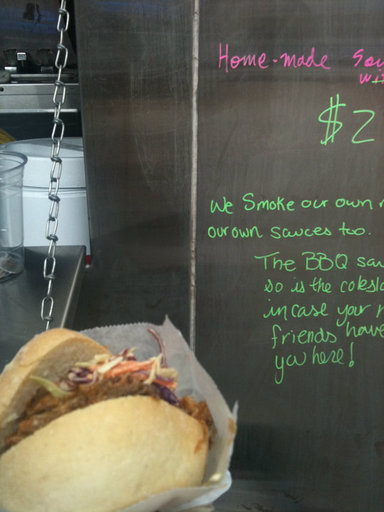 Home-made
$2
We Smoke our own
our own sauces too.
The BBQ
so is the
in case your
friends have
you here!